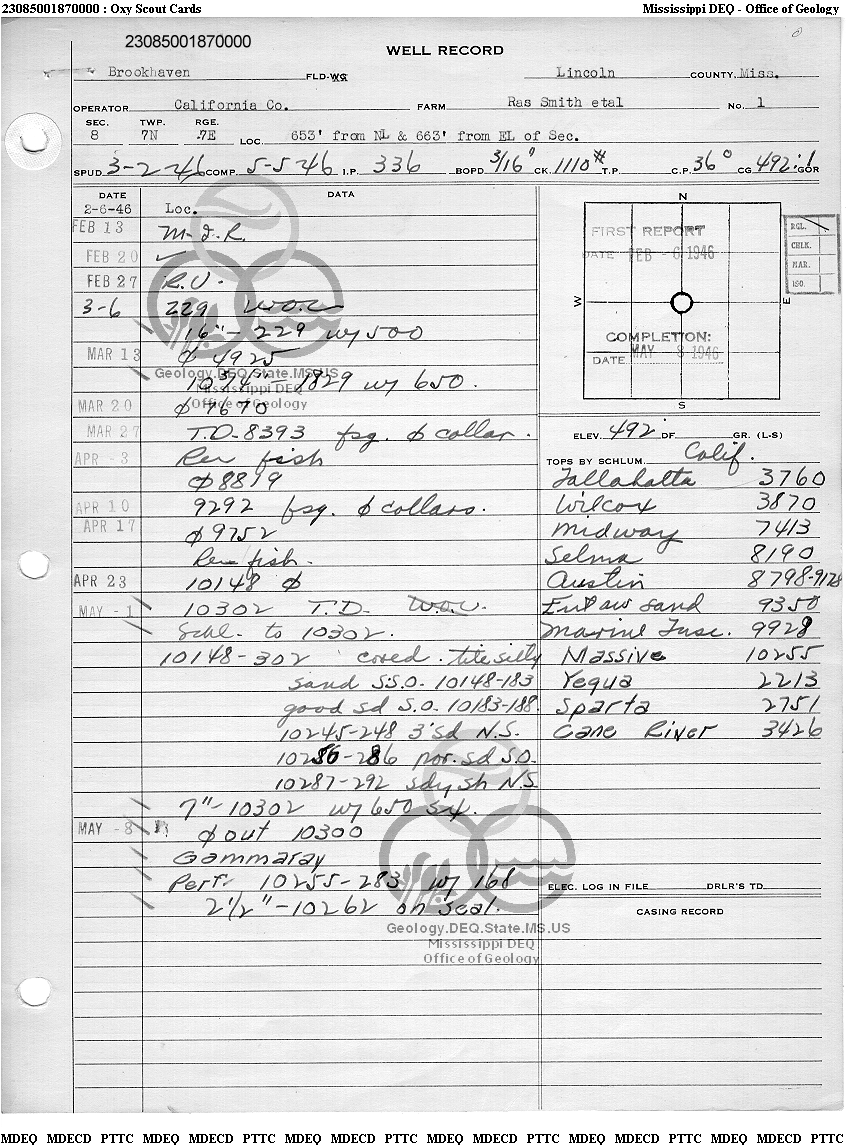 23085001870000 : Oxy Scout Cards
Mississippi DEQ - Office of Geology
23085001870000
WELL RECORD
Brookhaven FLD-WG Lincoln COUNTY, Miss.
OPERATOR California Co. FARM Ras Smith etal No. 1
SEC. 8 TWP. 7N RGE. 7E LOC. 653' from NL & 663' from EL of Sec.
SPUD 3-2-46 COMP. 5-5-46 I.P. 336 BOPD 3/16" CK. 1110# T.P. C.P. 36° CG 492:1 GOR
DATE DATA
2-6-46 Loc.
FEB 13 M.I.R.
FEB 20 ✓
FEB 27 R.U.
3-6 229 W.O.C.
16"-229 w/ 500
MAR 13 Ø 4925
10 3/4"-1829 w/ 650.
MAR 20 Ø 7670
MAR 27 T.D-8393 fsg. Ø collar.
APR -3 Rec fish
Ø 8819
APR 10 9292 fsg. Ø collars.
APR 17 Ø 9752
Rec fish.
APR 23 10148 Ø
MAY -1 10302 T.D. W.O.C.
Schl. to 10302.
10148-302 cored. tite silty
sand S.S.O. 10148-183
good sd S.O. 10183-188.
10245-248 3' sd N.S.
10256-286 por. sd S.O.
10287-292 sdy sh N.S.
7"-10302 w/ 650 sx.
MAY -8 Ø out 10300
Gammaray
Perf. 10255-283 w/ 168
2 1/2"-10262 on seal.
N
W
E
S
FIRST REPORT
DATE FEB -6 1946
COMPLETION:
DATE MAY 8 1946
RGL.
CHLK.
MAR.
ISO.
ELEV. 492' DF. GR. (L-S)
TOPS BY SCHLUM. Calif.
Tallahatta 3760
Wilcox 3870
Midway 7413
Selma 8190
Austin 8798-9178
Eutaw sand 9350
Marine Tusc. 9928
Massive 10255
Yegua 2213
Sparta 2751
Cane River 3426
ELEC. LOG IN FILE DRLR'S TD
CASING RECORD
Geology.DEQ.State.MS.US
Mississippi DEQ
Office of Geology
Geology.DEQ.State.MS.US
Mississippi DEQ
Office of Geology
MDEQ MDECD PTTC MDEQ MDECD PTTC MDEQ MDECD PTTC MDEQ MDECD PTTC MDEQ MDECD PTTC MDEQ MDECD PTTC